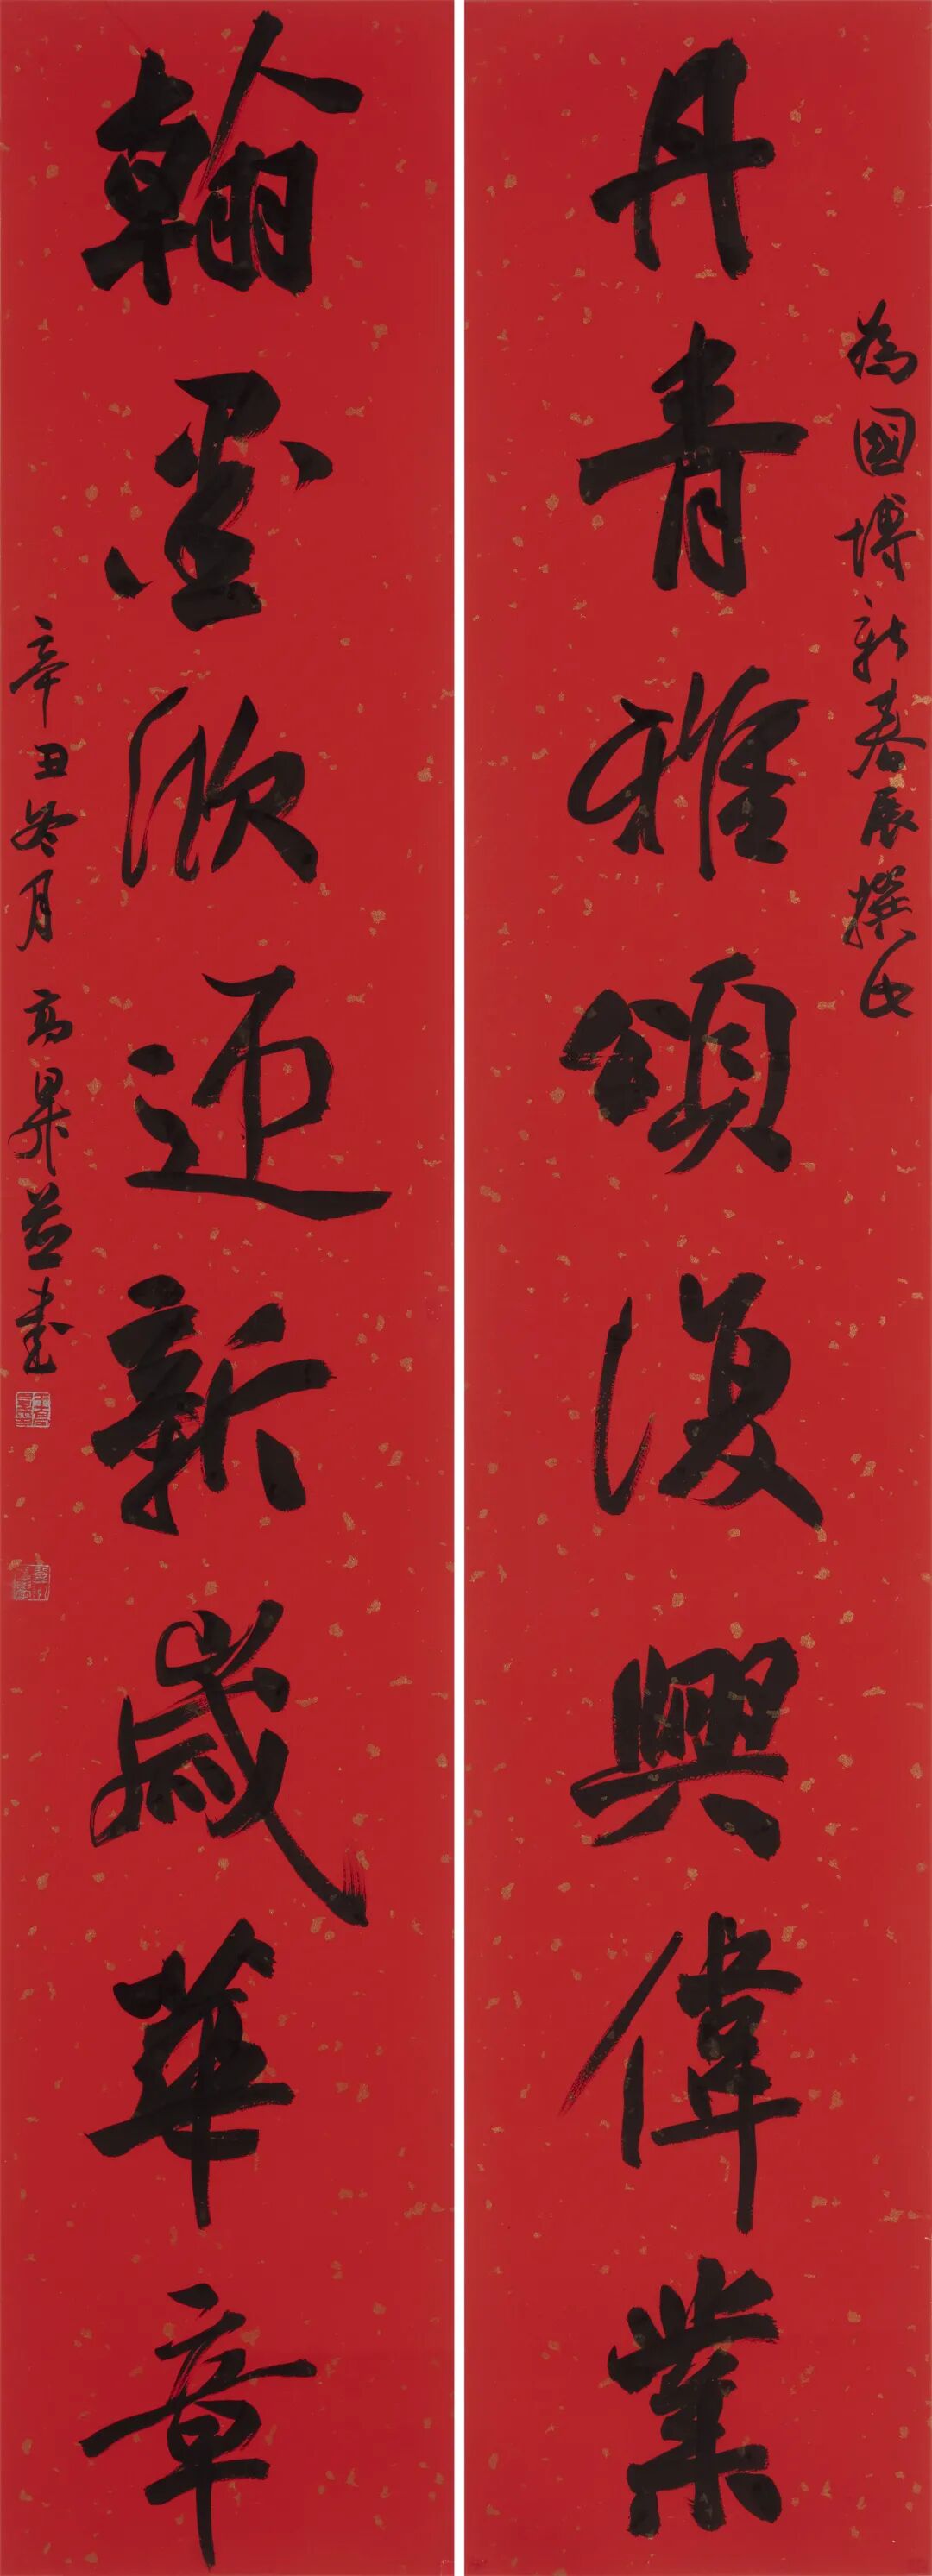 為國博新春展撰句
丹青雅頌復興偉業
翰墨欣迎新歲華章
辛丑冬月 高昇並書